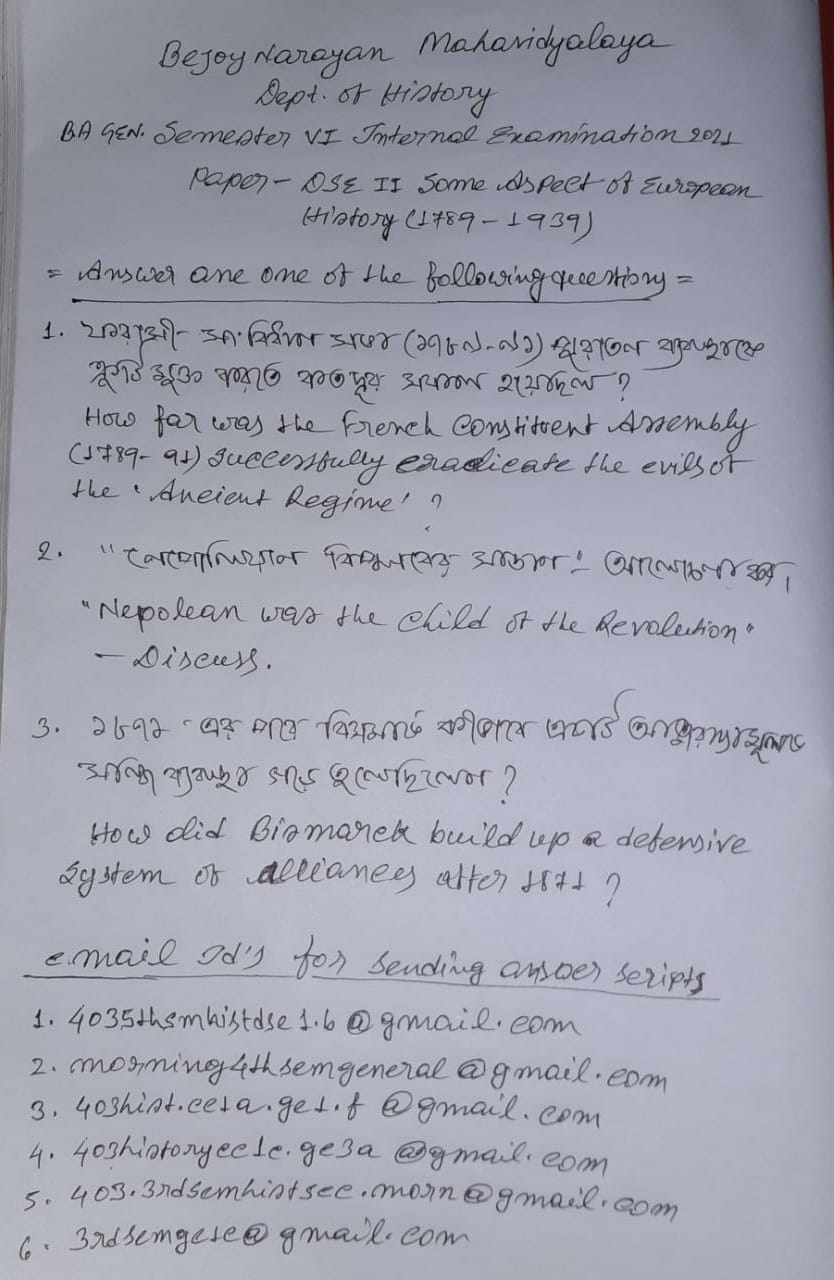 Bejoy Narayan Mahavidyalaya
Dept. of History
BA GEN. Semester VI Internal Examination 2021
Paper - DSE II Some Aspect of European
History (1789 - 1939)
= Answer ane one of the following queestiory =
1. ফরাসী সংবিধান সভা (১৭৮৯-৯১) পুরাতন ব্যবস্থাকে
ত্রুটি মুক্ত করতে কতদূর সফল হয়েছিল ?
How far was the French Constituent Assembly
(1789-91) Successfully eradicate the evils of
the 'Ancient Regime' ?
2. "নেপোলিয়ান বিপ্লবের সন্তান" আলোচনা কর।
"Nepolean was the Child of the Revolution"
- Discuss.
3. ১৮৭১ এর পরে বিসমার্ক কীভাবে একটি আত্মরক্ষামূলক
সন্ধি ব্যবস্থা গড়ে তুলেছিলেন ?
How did Bismarck build up a defensive
System of alliances after 1871 ?
e.mail Id's for sending answer scripts
1. 4035thsmhistdse1.6@gmail.com
2. morning4thsemgeneral@gmail.com
3. 403hist.cc1a.ge1.f@gmail.com
4. 403historycc1c.ge3a@gmail.com
5. 403.3rdsemhistsec.morn@gmail.com
6. 3rdsemge1c@gmail.com